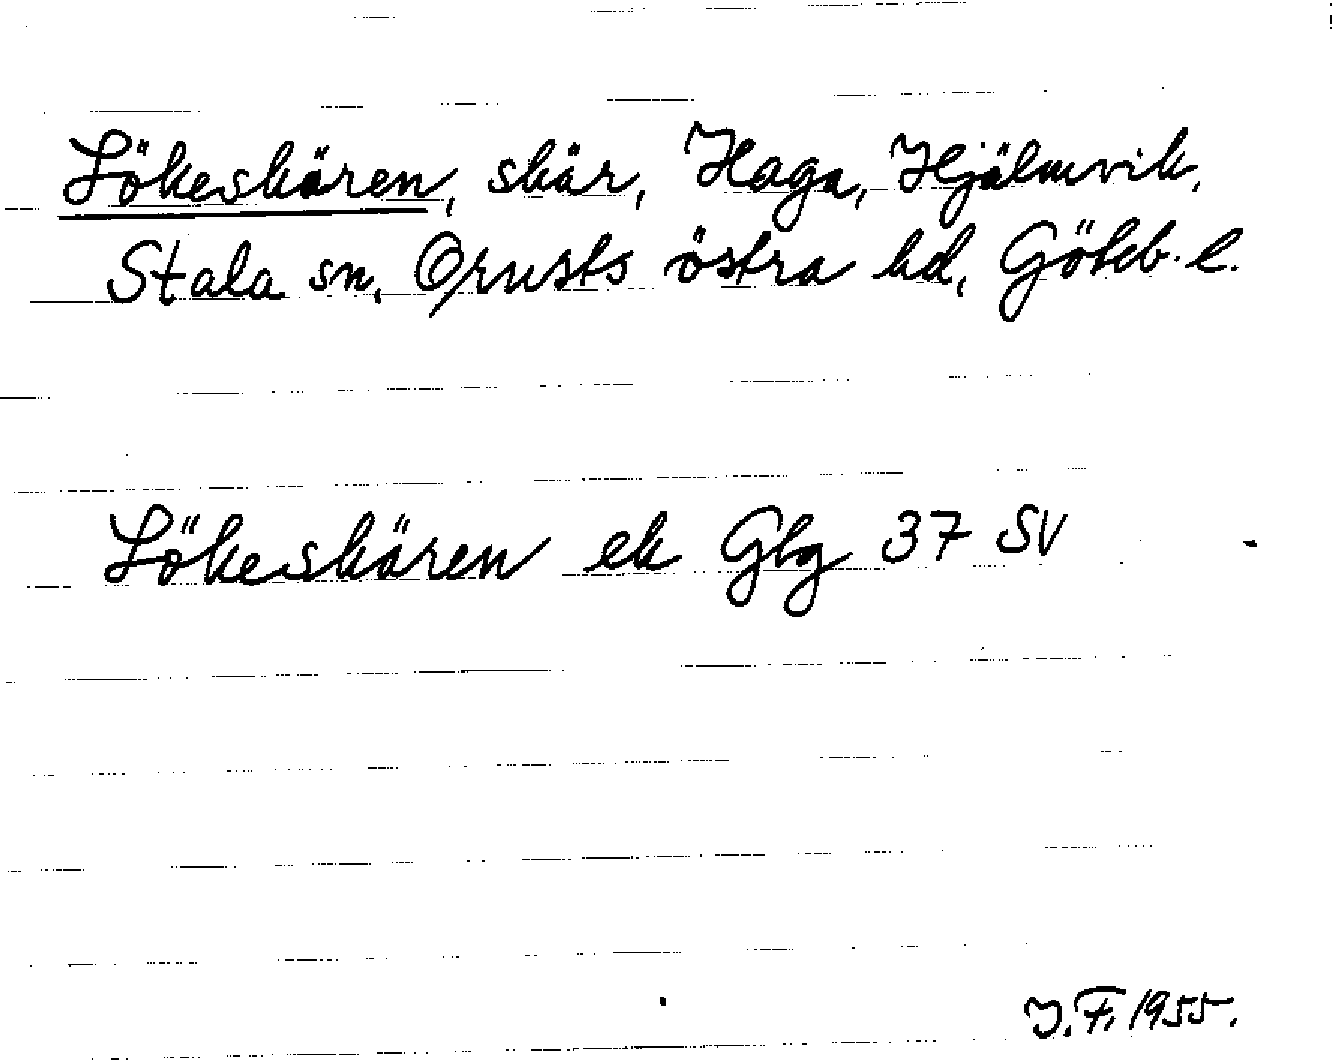 Lökeskären, skär, Haga, Hjälmvik,
Stala sn, Orusts östra hd, Göteb. l.
Lökeskären ek Gbg 37 SV
J.F. 1955.